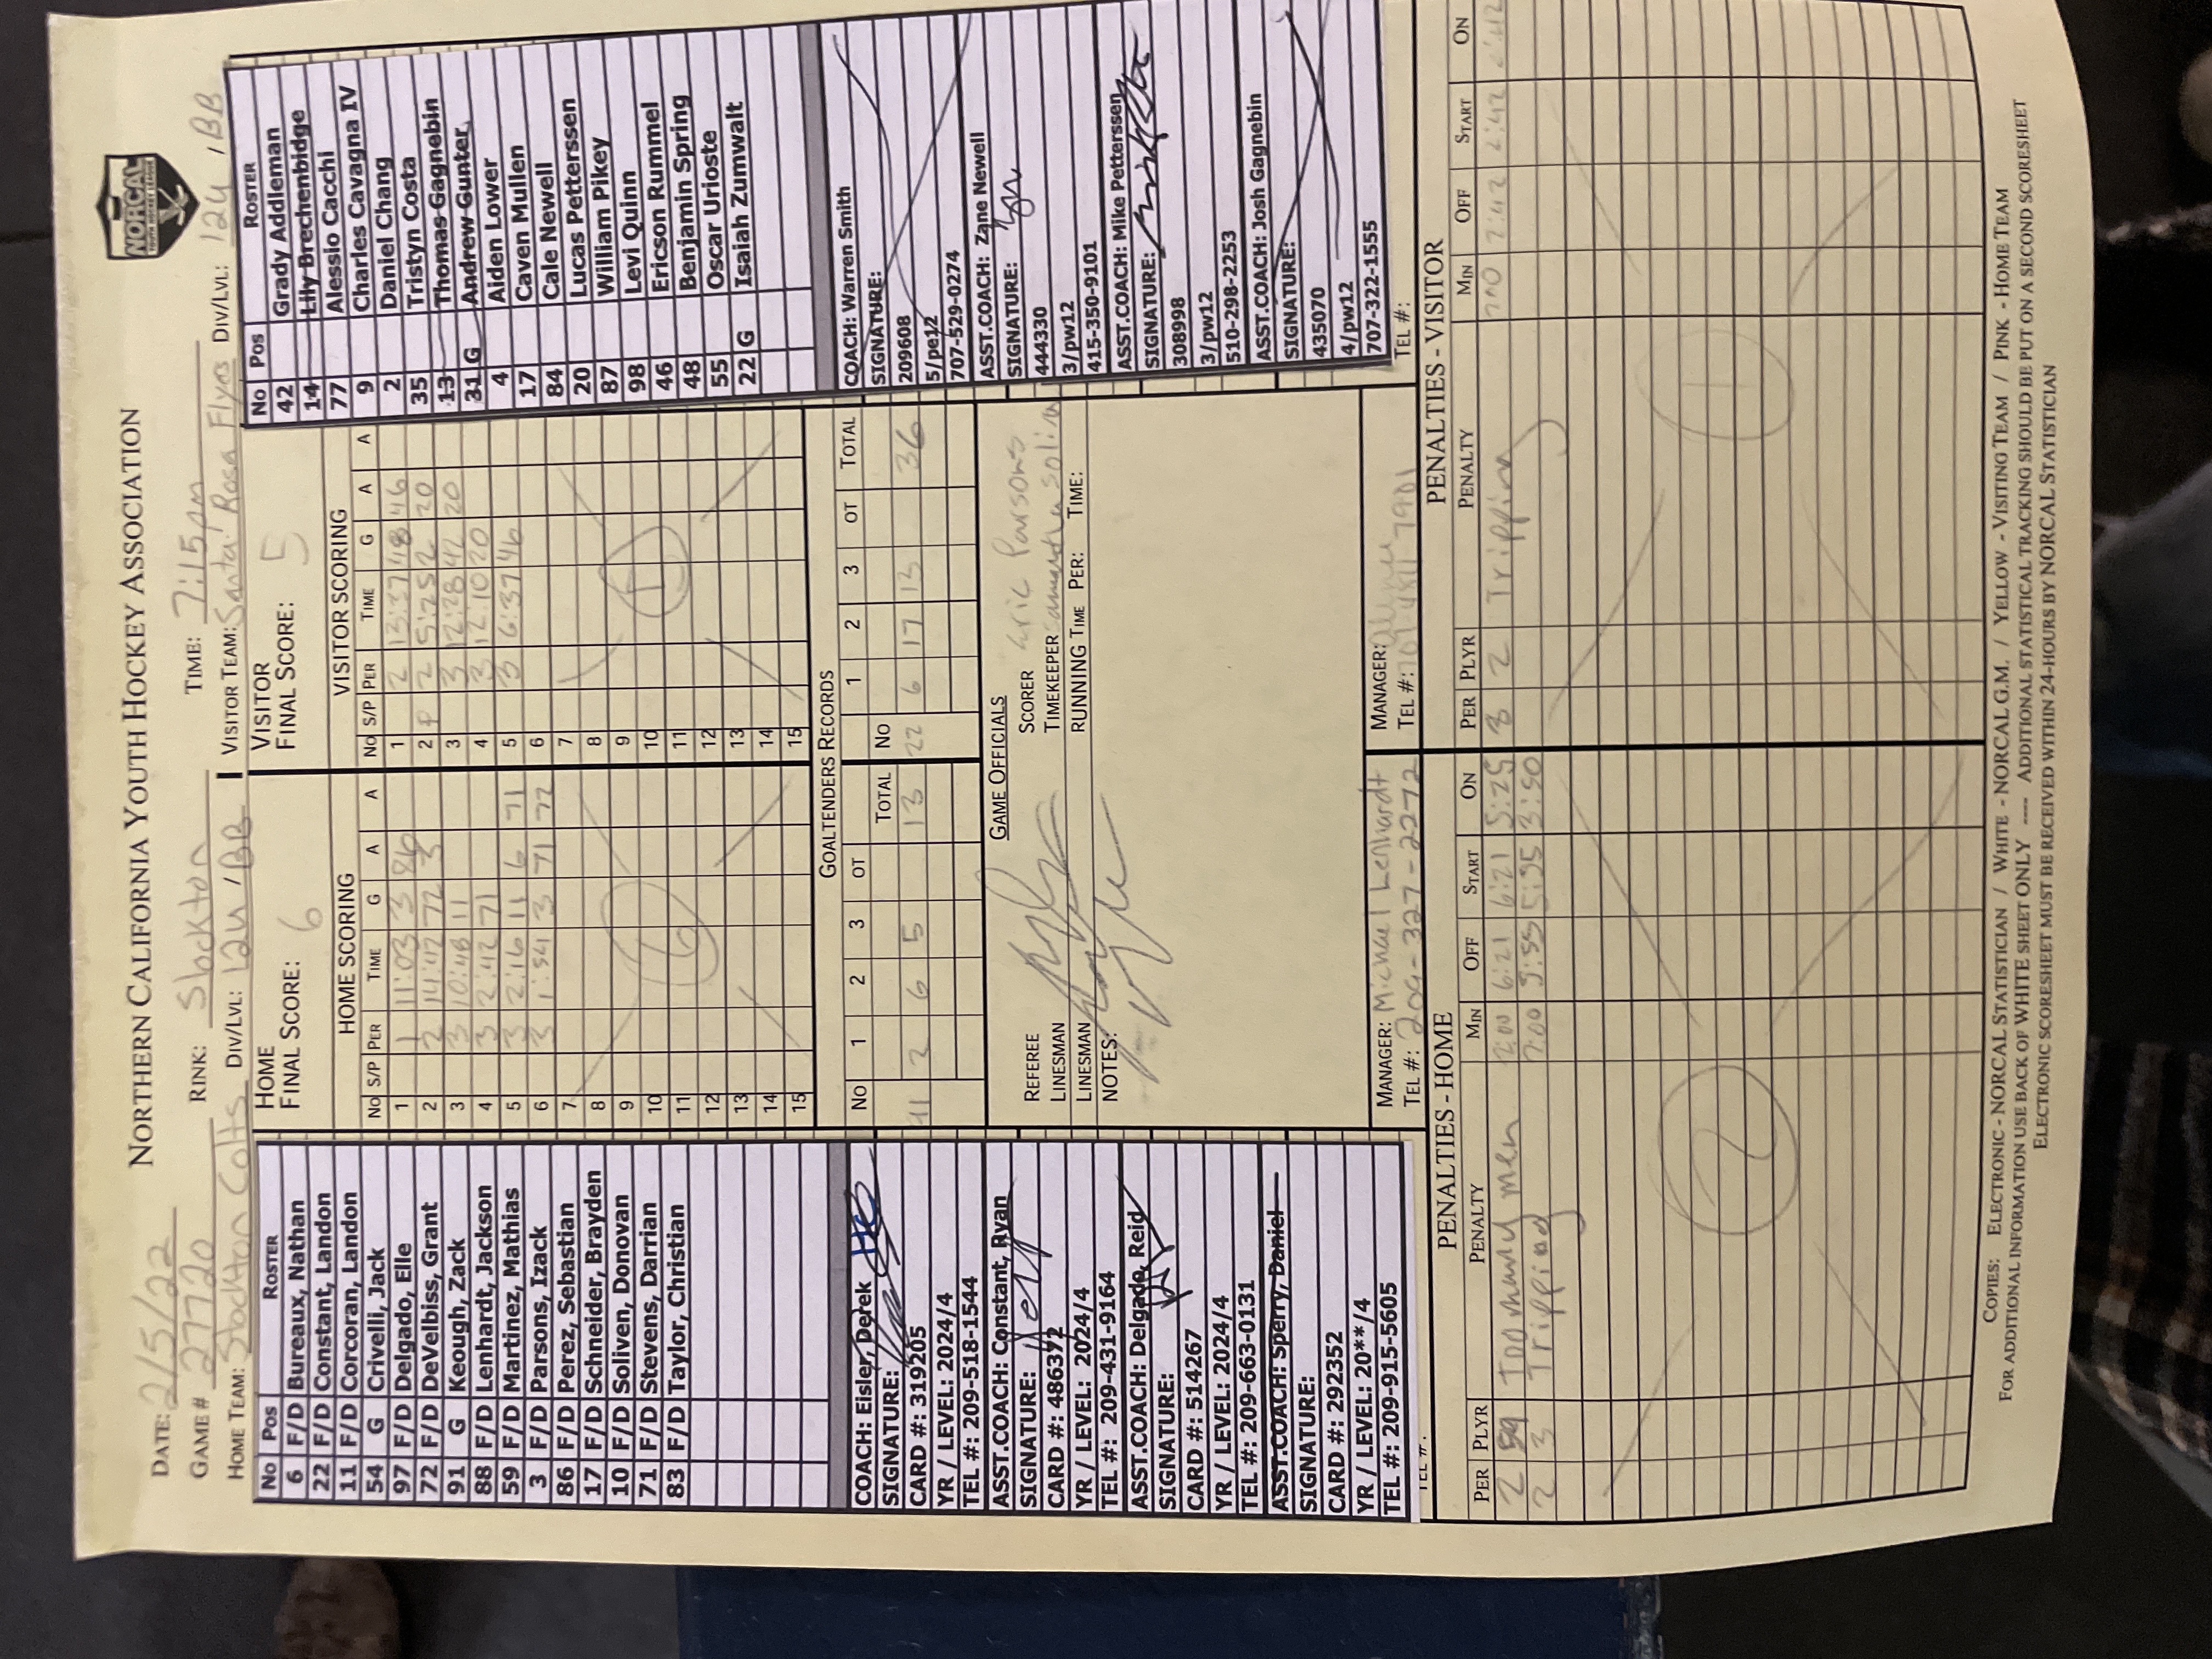 NORTHERN CALIFORNIA YOUTH HOCKEY ASSOCIATION
NORCAL
YOUTH HOCKEY LEAGUE
DATE: 2/5/22
GAME # 27720 RINK: Stockton TIME: 7:15pm
HOME TEAM: Stockton Colts DIV/LVL: 12U / BB VISITOR TEAM: Santa Rosa Flyers DIV/LVL: 12U / BB
No Pos ROSTER
6 F/D Bureaux, Nathan
22 F/D Constant, Landon
11 F/D Corcoran, Landon
54 G Crivelli, Jack
97 F/D Delgado, Elle
72 F/D DeVelbiss, Grant
91 G Keough, Zack
88 F/D Lenhardt, Jackson
59 F/D Martinez, Mathias
3 F/D Parsons, Izack
86 F/D Perez, Sebastian
17 F/D Schneider, Brayden
10 F/D Soliven, Donovan
71 F/D Stevens, Darrian
83 F/D Taylor, Christian
COACH: Eisler, Derek
SIGNATURE:
CARD #: 319205
YR / LEVEL: 2024/4
TEL #: 209-518-1544
ASST.COACH: Constant, Ryan
SIGNATURE:
CARD #: 486372
YR / LEVEL: 2024/4
TEL #: 209-431-9164
ASST.COACH: Delgado, Reid
SIGNATURE:
CARD #: 514267
YR / LEVEL: 2024/4
TEL #: 209-663-0131
ASST.COACH: Sperry, Daniel
SIGNATURE:
CARD #: 292352
YR / LEVEL: 20**/4
TEL #: 209-915-5605
HOME
FINAL SCORE: 6
HOME SCORING
No S/P PER TIME G A A
1 1 11:03 3 86
2 2 14:42 72 3
3 3 10:48 11
4 3 2:42 71
5 3 2:16 11 6 71
6 3 1:54 3 71 72
7
8
9
10
11
12
13
14
15
6
VISITOR
FINAL SCORE: 5
VISITOR SCORING
No S/P PER TIME G A A
1 2 13:37 48 46
2 P 2 5:25 2 20
3 3 12:28 42 20
4 3 12:10 20
5 3 6:37 46
6
7
8
9
10
11
12
13
14
15
5
GOALTENDERS RECORDS
No 1 2 3 OT TOTAL No 1 2 3 OT TOTAL
91 2 6 5 13 22 6 17 13 36
GAME OFFICIALS
REFEREE
LINESMAN
LINESMAN
NOTES:
SCORER Eric Parsons
TIMEKEEPER Samantha
RUNNING TIME PER: TIME:
MANAGER: Michael Lenhardt
TEL #: 209-327-2272
MANAGER:
TEL #:
No Pos ROSTER
42 Grady Addleman
14 Lily Brechenbidge
77 Alessio Cacchi
9 Charles Cavagna IV
2 Daniel Chang
35 Tristyn Costa
13 Thomas Gagnebin
31 G Andrew Gunter
4 Aiden Lower
17 Caven Mullen
84 Cale Newell
20 Lucas Petterssen
87 William Pikey
98 Levi Quinn
46 Ericson Rummel
48 Benjamin Spring
55 Oscar Urioste
22 G Isaiah Zumwalt
COACH: Warren Smith
SIGNATURE:
209608
5/pe12
707-529-0274
ASST.COACH: Zane Newell
SIGNATURE:
444330
3/pw12
415-350-9101
ASST.COACH: Mike Petterssen
SIGNATURE:
308998
3/pw12
510-298-2253
ASST.COACH: Josh Gagnebin
SIGNATURE:
435070
4/pw12
707-322-1555
TEL #:
PENALTIES - HOME
PER PLYR PENALTY MIN OFF START ON
2 59 Too many men 2:00 6:21 6:21 5:25
2 3 Tripping 2:00 5:55 3:50
2
PENALTIES - VISITOR
PER PLYR PENALTY MIN OFF START ON
3 2 Tripping 2:00 2:42 2:42 2:42
1
COPIES: ELECTRONIC - NORCAL STATISTICIAN / WHITE - NORCAL G.M. / YELLOW - VISITING TEAM / PINK - HOME TEAM
FOR ADDITIONAL INFORMATION USE BACK OF WHITE SHEET ONLY ---- ADDITIONAL STATISTICAL TRACKING SHOULD BE PUT ON A SECOND SCORESHEET
ELECTRONIC SCORESHEET MUST BE RECEIVED WITHIN 24-HOURS BY NORCAL STATISTICIAN